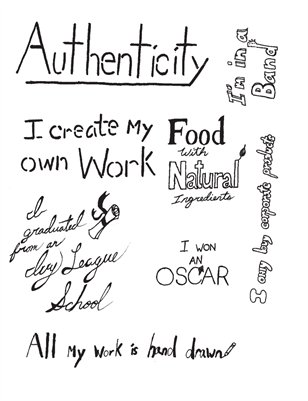 Authenticity
I'm in a
Band
I create My
own Work
Food
With
Natural
Ingredients
I
graduated
from an
(Ivy) League
School
I WON
AN
OSCAR
I only buy corporate products
All My Work is hand drawn